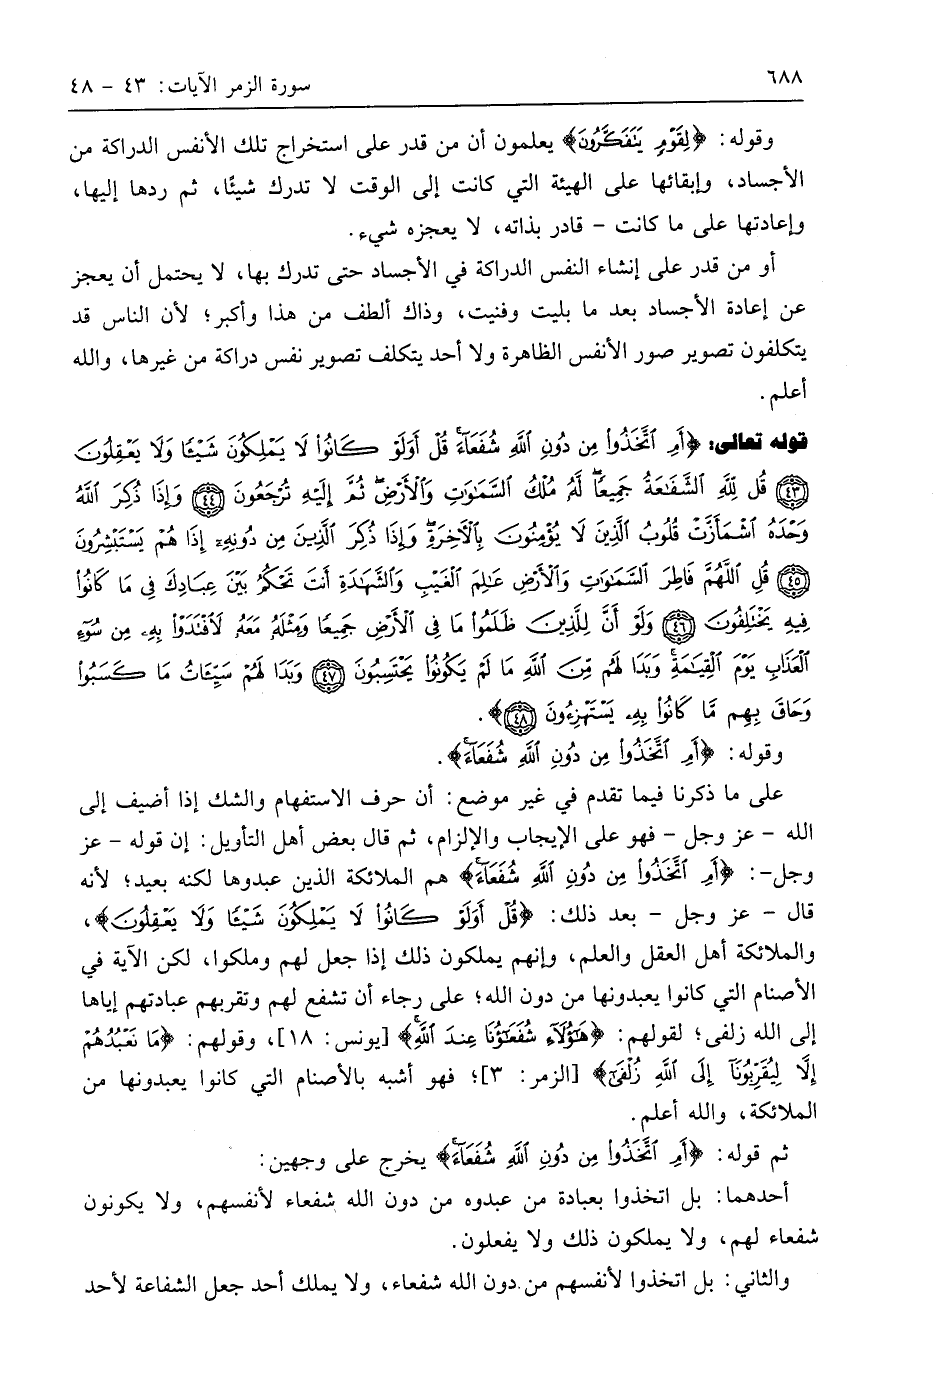 ٦٨٨
سورة الزمر الآيات: ٤٣ - ٤٨
وقوله: ﴿لِقَوْمٍ يَتَفَكَّرُونَ﴾ يعلمون أن من قدر على استخراج تلك الأنفس الدراكة من
الأجساد، وإبقائها على الهيئة التي كانت إلى الوقت لا تدرك شيئًا، ثم ردها إليها،
وإعادتها على ما كانت - قادر بذاته، لا يعجزه شيء.
أو من قدر على إنشاء النفس الدراكة في الأجساد حتى تدرك بها، لا يحتمل أن يعجز
عن إعادة الأجساد بعد ما بليت وفنيت، وذاك ألطف من هذا وأكبر؛ لأن الناس قد
يتكلفون تصوير صور الأنفس الظاهرة ولا أحد يتكلف تصوير نفس دراكة من غيرها، والله
أعلم.
قوله تعالى: ﴿أَمِ ٱتَّخَذُوا۟ مِن دُونِ ٱللَّهِ شُفَعَآءَ ۚ قُلْ أَوَلَوْ كَانُوا۟ لَا يَمْلِكُونَ شَيْـًٔا وَلَا يَعْقِلُونَ
٤٣ قُل لِّلَّهِ ٱلشَّفَـٰعَةُ جَمِيعًا ۖ لَّهُۥ مُلْكُ ٱلسَّمَـٰوَٰتِ وَٱلْأَرْضِ ۖ ثُمَّ إِلَيْهِ تُرْجَعُونَ ٤٤ وَإِذَا ذُكِرَ ٱللَّهُ
وَحْدَهُ ٱشْمَأَزَّتْ قُلُوبُ ٱلَّذِينَ لَا يُؤْمِنُونَ بِٱلْـَٔاخِرَةِ ۖ وَإِذَا ذُكِرَ ٱلَّذِينَ مِن دُونِهِۦٓ إِذَا هُمْ يَسْتَبْشِرُونَ
٤٥ قُلِ ٱللَّهُمَّ فَاطِرَ ٱلسَّمَـٰوَٰتِ وَٱلْأَرْضِ عَـٰلِمَ ٱلْغَيْبِ وَٱلشَّهَـٰدَةِ أَنتَ تَحْكُمُ بَيْنَ عِبَادِكَ فِى مَا كَانُوا۟
فِيهِ يَخْتَلِفُونَ ٤٦ وَلَوْ أَنَّ لِلَّذِينَ ظَلَمُوا۟ مَا فِى ٱلْأَرْضِ جَمِيعًا وَمِثْلَهُۥ مَعَهُۥ لَٱفْتَدَوْا۟ بِهِۦ مِن سُوٓءِ
ٱلْعَذَابِ يَوْمَ ٱلْقِيَـٰمَةِ ۚ وَبَدَا لَهُم مِّنَ ٱللَّهِ مَا لَمْ يَكُونُوا۟ يَحْتَسِبُونَ ٤٧ وَبَدَا لَهُمْ سَيِّـَٔاتُ مَا كَسَبُوا۟
وَحَاقَ بِهِم مَّا كَانُوا۟ بِهِۦ يَسْتَهْزِءُونَ ٤٨﴾.
وقوله: ﴿أَمِ ٱتَّخَذُوا۟ مِن دُونِ ٱللَّهِ شُفَعَآءَ ۚ﴾.
على ما ذكرنا فيما تقدم في غير موضع: أن حرف الاستفهام والشك إذا أضيف إلى
الله - عز وجل - فهو على الإيجاب والإلزام، ثم قال بعض أهل التأويل: إن قوله - عز
وجل-: ﴿أَمِ ٱتَّخَذُوا۟ مِن دُونِ ٱللَّهِ شُفَعَآءَ ۚ﴾ هم الملائكة الذين عبدوها لكنه بعيد؛ لأنه
قال - عز وجل - بعد ذلك: ﴿قُلْ أَوَلَوْ كَانُوا۟ لَا يَمْلِكُونَ شَيْـًٔا وَلَا يَعْقِلُونَ﴾،
والملائكة أهل العقل والعلم، وإنهم يملكون ذلك إذا جعل لهم وملكوا، لكن الآية في
الأصنام التي كانوا يعبدونها من دون الله؛ على رجاء أن تشفع لهم وتقربهم عبادتهم إياها
إلى الله زلفى؛ لقولهم: ﴿هَـٰٓؤُلَآءِ شُفَعَـٰٓؤُنَا عِندَ ٱللَّهِ ۚ﴾ [يونس: ١٨]، وقولهم: ﴿مَا نَعْبُدُهُمْ
إِلَّا لِيُقَرِّبُونَآ إِلَى ٱللَّهِ زُلْفَىٰٓ﴾ [الزمر: ٣]؛ فهو أشبه بالأصنام التي كانوا يعبدونها من
الملائكة، والله أعلم.
ثم قوله: ﴿أَمِ ٱتَّخَذُوا۟ مِن دُونِ ٱللَّهِ شُفَعَآءَ ۚ﴾ يخرج على وجهين:
أحدهما: بل اتخذوا بعبادة من عبدوه من دون الله شفعاء لأنفسهم، ولا يكونون
شفعاء لهم، ولا يملكون ذلك ولا يفعلون.
والثاني: بل اتخذوا لأنفسهم من دون الله شفعاء، ولا يملك أحد جعل الشفاعة لأحد